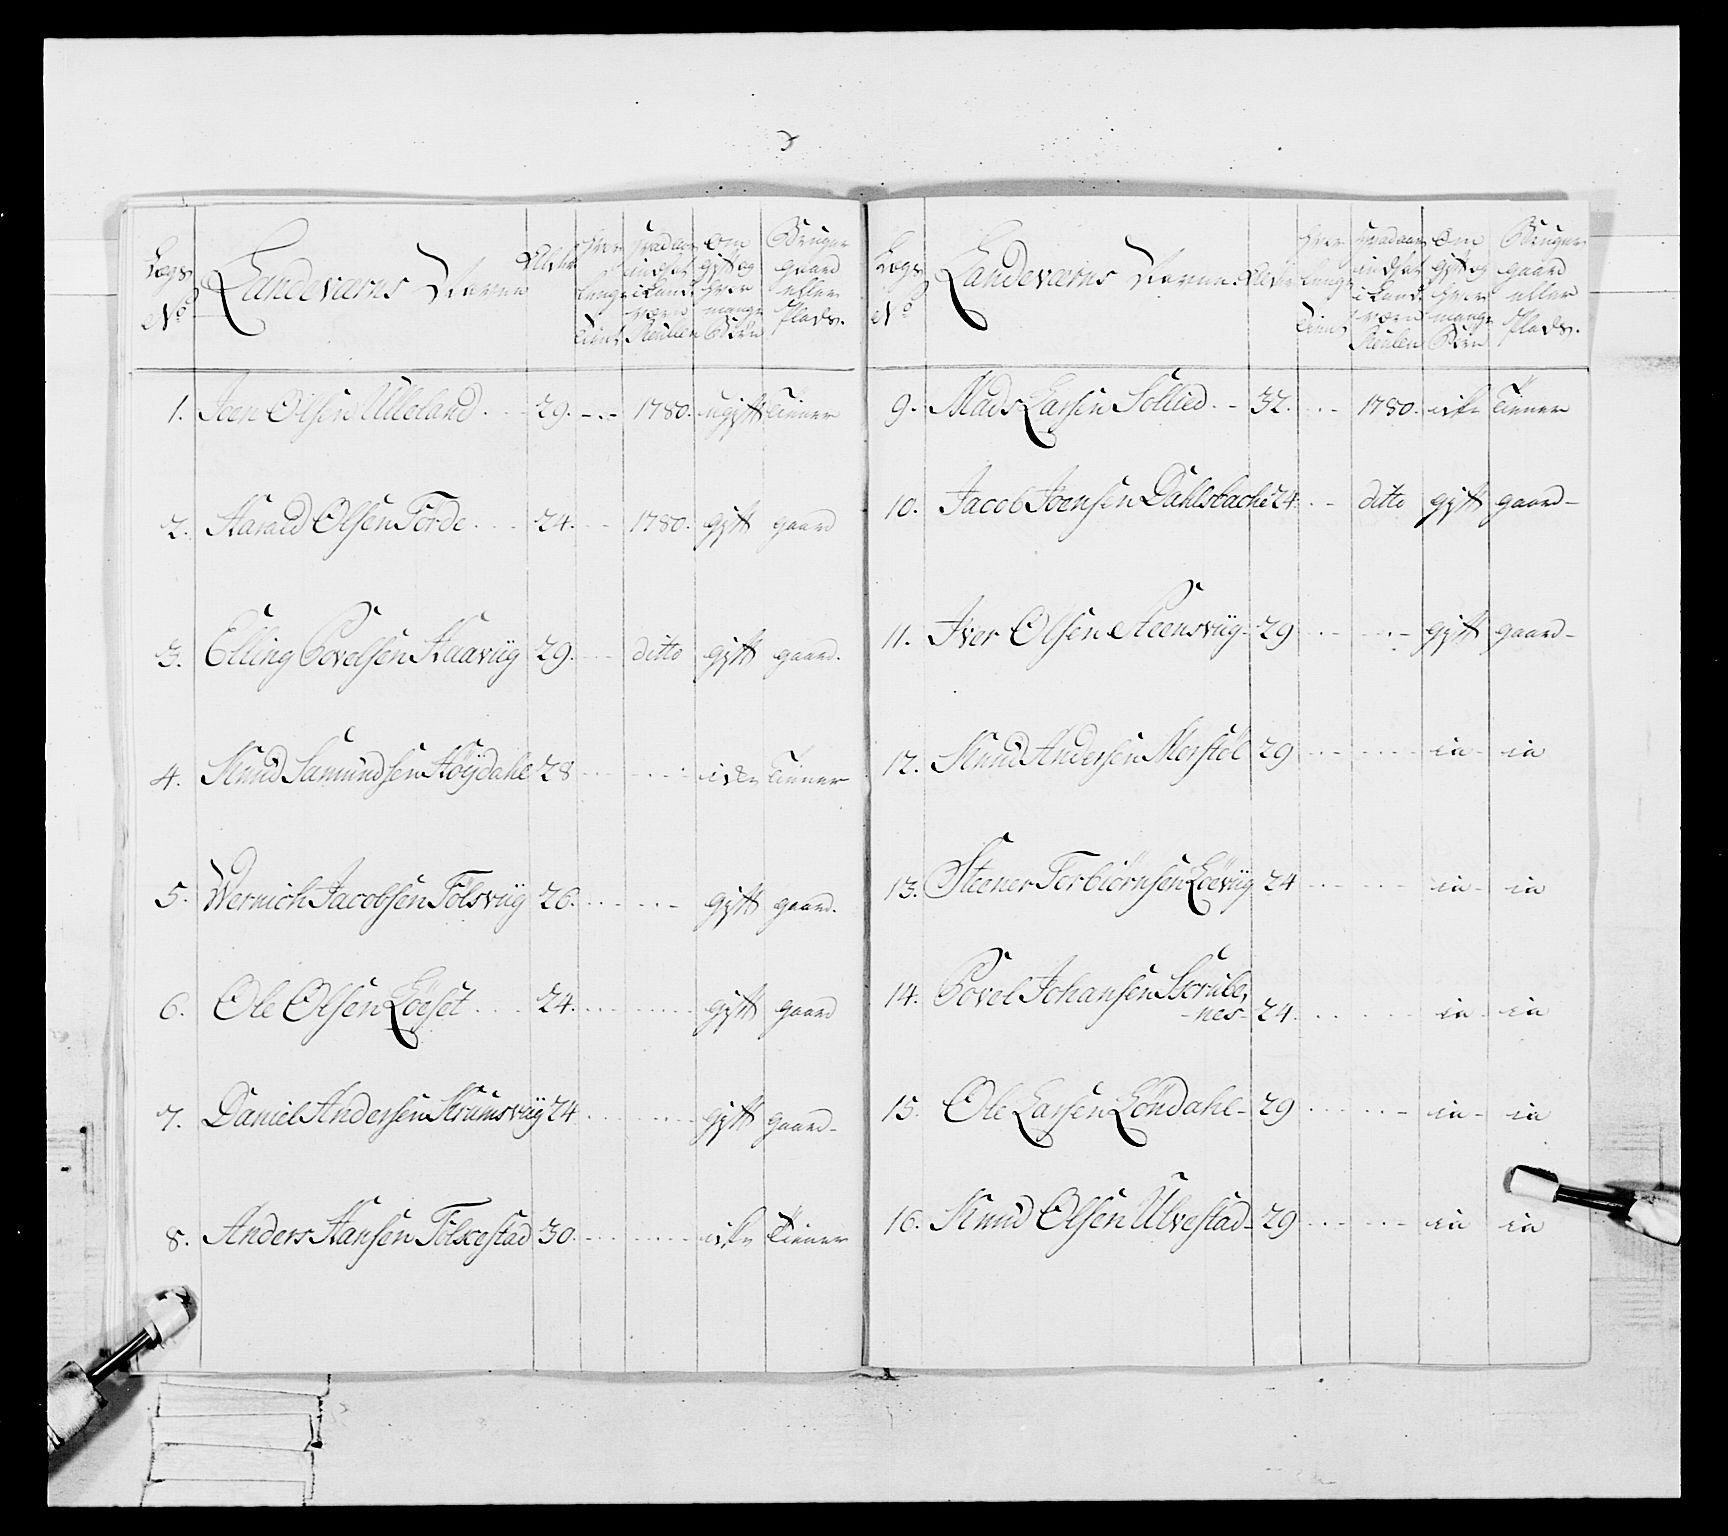 Lægs No | Landeværns Navne | Alder | Hvor længe tient | Hvad aar indsat i Land værn Rullen | Om gift og hvor mange Børn | Bruger gaard eller Plads.
1. Joen Olsen Ulleland . . . 29. - . - 1780. ugift tiener
2. Harald Olsen Förde . . . 24. . - 1780. gift gaard
3. Elling Povelsen Haaviig 29. . - ditto gift gaard.
4. Knud Samundsen Höÿdahl 28 . . . . . . icke tiener
5. Wernich Jacobsen Tölsviig 26. . . . . . - gift gaard.
6. Ole Olsen Löeset . . . 24. . . . . . . gift gaard
7. Daniel Andersen Krumsviig 24 . . . . . . gift gaard -
8. Anders Hansen Tölsestad 30. . . . . . . icke tiener
Lægs No | Landeværns Navne | Alder | Hvor længe tient | Hvad aar indsat i Land. værn Rullen | Om gift og hver mange Börn | Bruger gaard eller Plads.
9. Mads Larsen Sollied . - 32. . - 1780. icke tiener
10. Jacob Joensen Dahlsbache 24. . - ditto gift gaard -
11. Iver Olsen Steensviig - 29 . . - . . - gift gaard -
12. Knud Andersen Merstöl 29 . . - . . . - ia - ia
13. Steener Torbiörnsen Löeviig 24 . . . . . . ia - ia
14. Povel Johansen Skrube,
-nes - 24. . . . . . ia - ia
15. Ole Larsen Löndahl - 29 . . . . . - ia - ia
16. Knud Olsen Ulvestad - 29 . . . . . - ia - ia